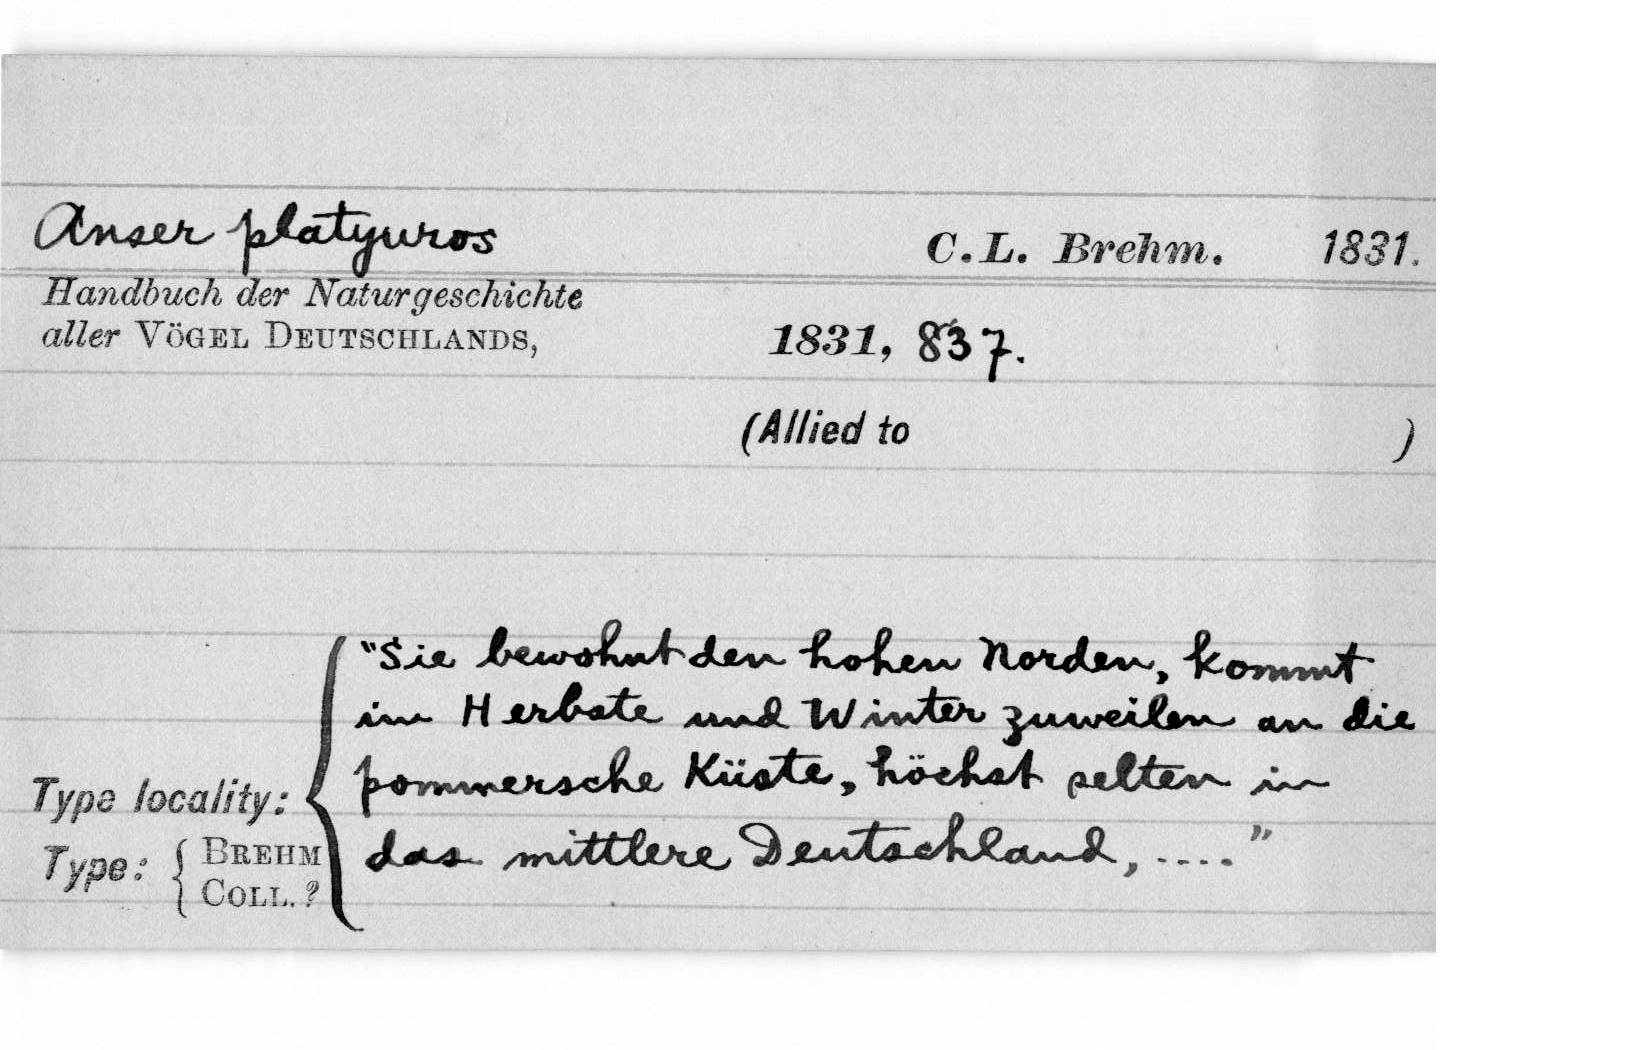 Anser platyuros C.L. Brehm. 1831.
Handbuch der Naturgeschichte
aller VÖGEL DEUTSCHLANDS, 1831, 837.
(Allied to )
"Sie bewohnt den hohen Norden, kommt
im Herbste und Winter zuweilen an die
pommersche Küste, höchst selten in
Type locality:
das mittlere Deutschland, ...."
Type: { BREHM
COLL. ?